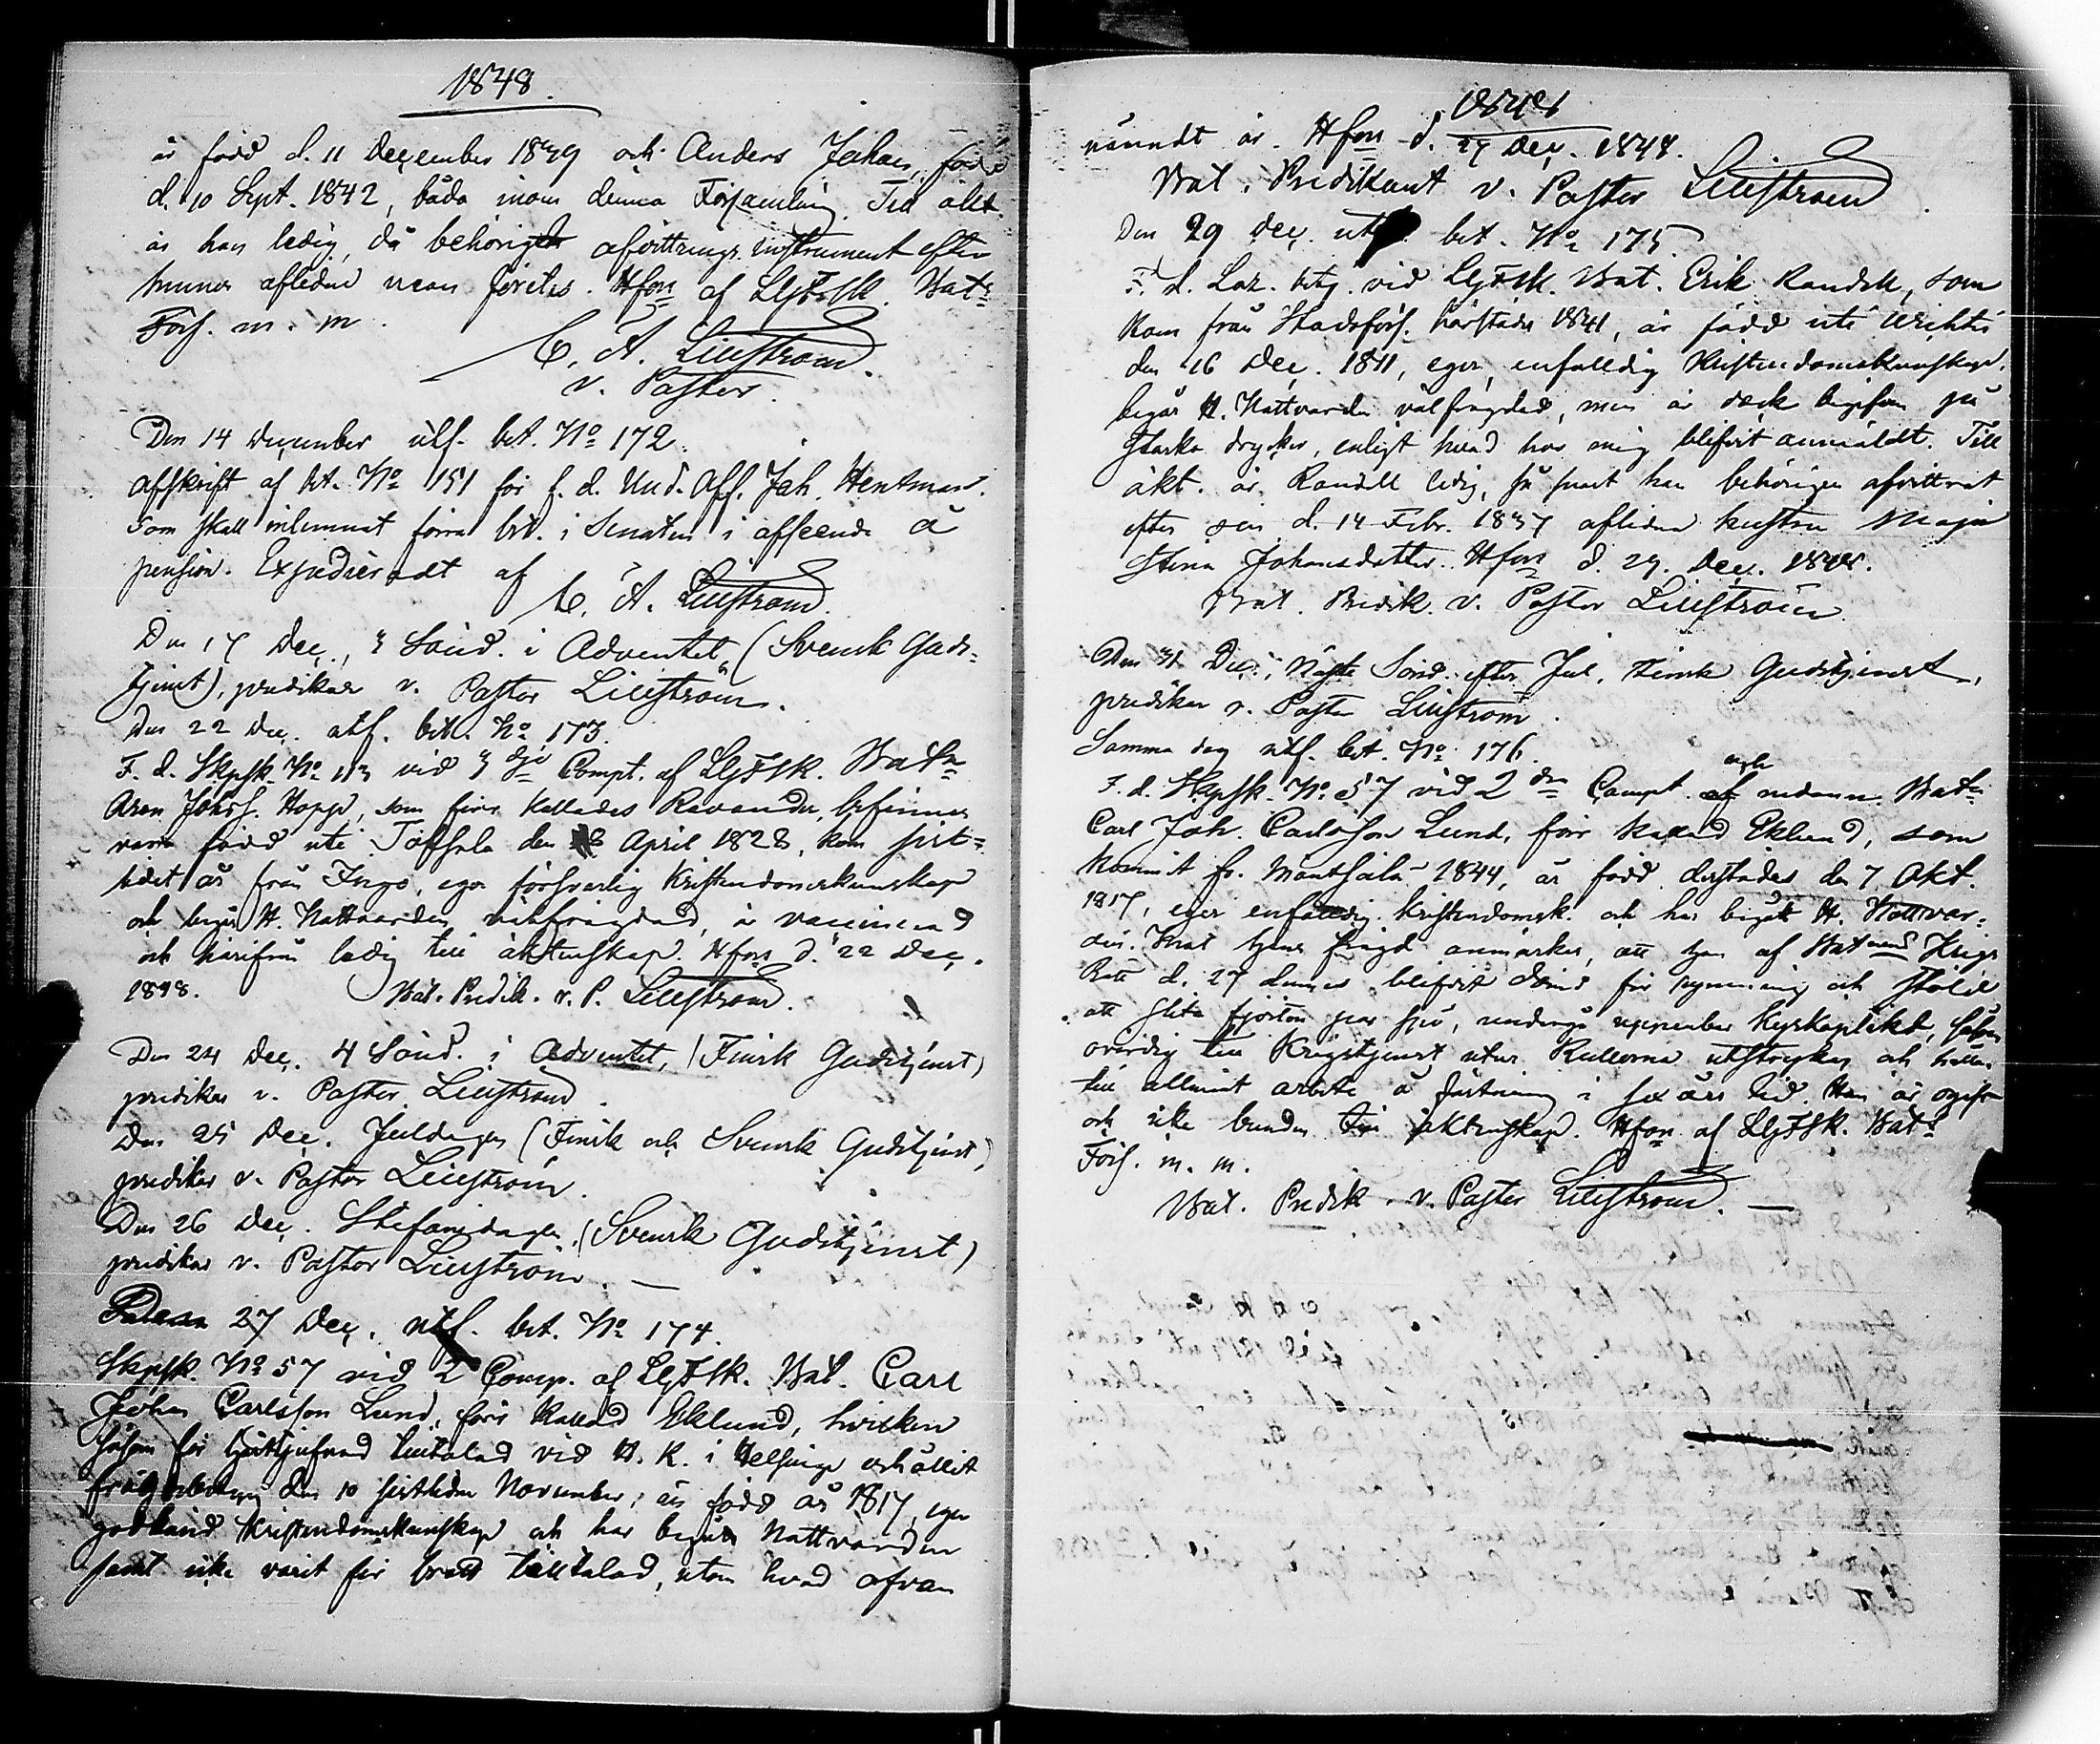 1848.
är född d. 11 December 1839 och Anders Johan, född
d. 10 Sept. 1842, båda inom denna Församling. Till äkt.
är han ledig, då behörigt afvittrings instrument efter
hennes aflidne man företes. Hfors af LgFSk. Batns
Förs. m. m.
C. A. Liliström.
v. Pastor.
Den 14 December utf. bet. No 172.
Afskrift af bet. No 151 för f. d. Und. Off. Joh. Hentman.
som skall inlemnat förra bet. i Senaten i afseende å
pension. Expedieradt af
C. A. Liliström.
Den 17 Dec., 3 Sönd. i Adventet (Svensk Guds-
tjenst), predikar v. Pastor Liliström.
Den 22 Dec. utf. bet. No 173.
F. d. Skpsk. No 113 vid 3dje Compt. af LgFSk. Batn
Aron Johs. Hopp, som förr kallades Ravander, befinnes
vara född uti Töfsala den 18 April 1828, kom sist-
lidet år från Ingo, eger försvarlig Kristendomskunskap
och begår H. Nattvarden välfrägdad, är vaccinerad
och härifrån ledig till äktenskap. Hfors d. 22 Dec.
1848. Bat. Predik. v. P. Liliström.
Den 24 Dec. 4 Sönd. i Adventet, (Finsk Gudstjenst)
predikar v. Pastor Liliström.
Den 25 Dec. Juldagen (Finsk och Svensk Gudstjenst),
predikar v. Pastor Liliström.
Den 26 Dec. Stefanidagen (Svensk Gudstjenst)
predikar v. Pastor Liliström.
Den 27 Dec. utf. bet. No 174.
Skpsk. No 57 vid 2 Comp. af LgFSk. Bat. Carl
Johan Carlsson Lund, förr kallad Eklund, hvilken
såsom för tjufnad tilltalad vid H. R. i Helsinge erhållit
den 10 sistlidne November, är född år 1817, eger
godkänd Kristendomskunskap och har begått Nattvarden
samt icke varit för brott tilltalad, utom hvad ofvan
1848
nämndt är. Hfors d. 27 Dec. 1848.
Bat. Predikant v. Pastor Liliström
Den 29 Dec. utf. bet. No 175
F. d. Laz. betj. vid LgFSk. Bat. Erik Randell, som
kom från Stadsförs. härstädes 1841, är född uti Wichtis
den 16 Dec. 1811, eger enfalldig Kristendomskunskap,
begår H. Nattvarden välfrägdad, men är dock begifven på
starka drycker, enligt hvad hos mig blifvit anmäldt. Till
äkt. är Randell ledig, så snart han behörigen afvittrat
efter sin d. 14 Febr. 1837 aflidna hustru Maja
Stina Johansdotter. Hfors d. 29. Dec. 1848.
Bat. Predik. v. Pastor Liliström.
Den 31 Dec., Näste Sönd. efter Jul, Finsk Gudstjenst,
predikar v. Pastor Liliström.
Samma dag utf. bet. No 176.
F. d. Skpsk. No 57 vid 2dra Compt. af Batn
Carl Joh. Carlsson Lund, förr kallad Eklund, som
kommit fr. Mäntsälä 1844, är född derstädes den 7 Okt.
1817, eger enfalldig Kristendomsk. och har begått H. Nattvar-
den. Hvad hans frägd anmärkes, att han af Batns Krigs
Rätt d. 27 dennes blifvit dömd för rymning och stöld
att slita fjorton par spö, undergå uppenbar Kyrkoplikt, såsom
ovärdig till Krigstjenst utur Rullorna utstrykas och hållas
till allmänt arbete å fästning i sex års tid. Han är ogift
och icke bunden till äktenskap. Hfors af LgFSk. Bats
Förs. m. m.
Bat. Predik. v. Pastor Liliström.